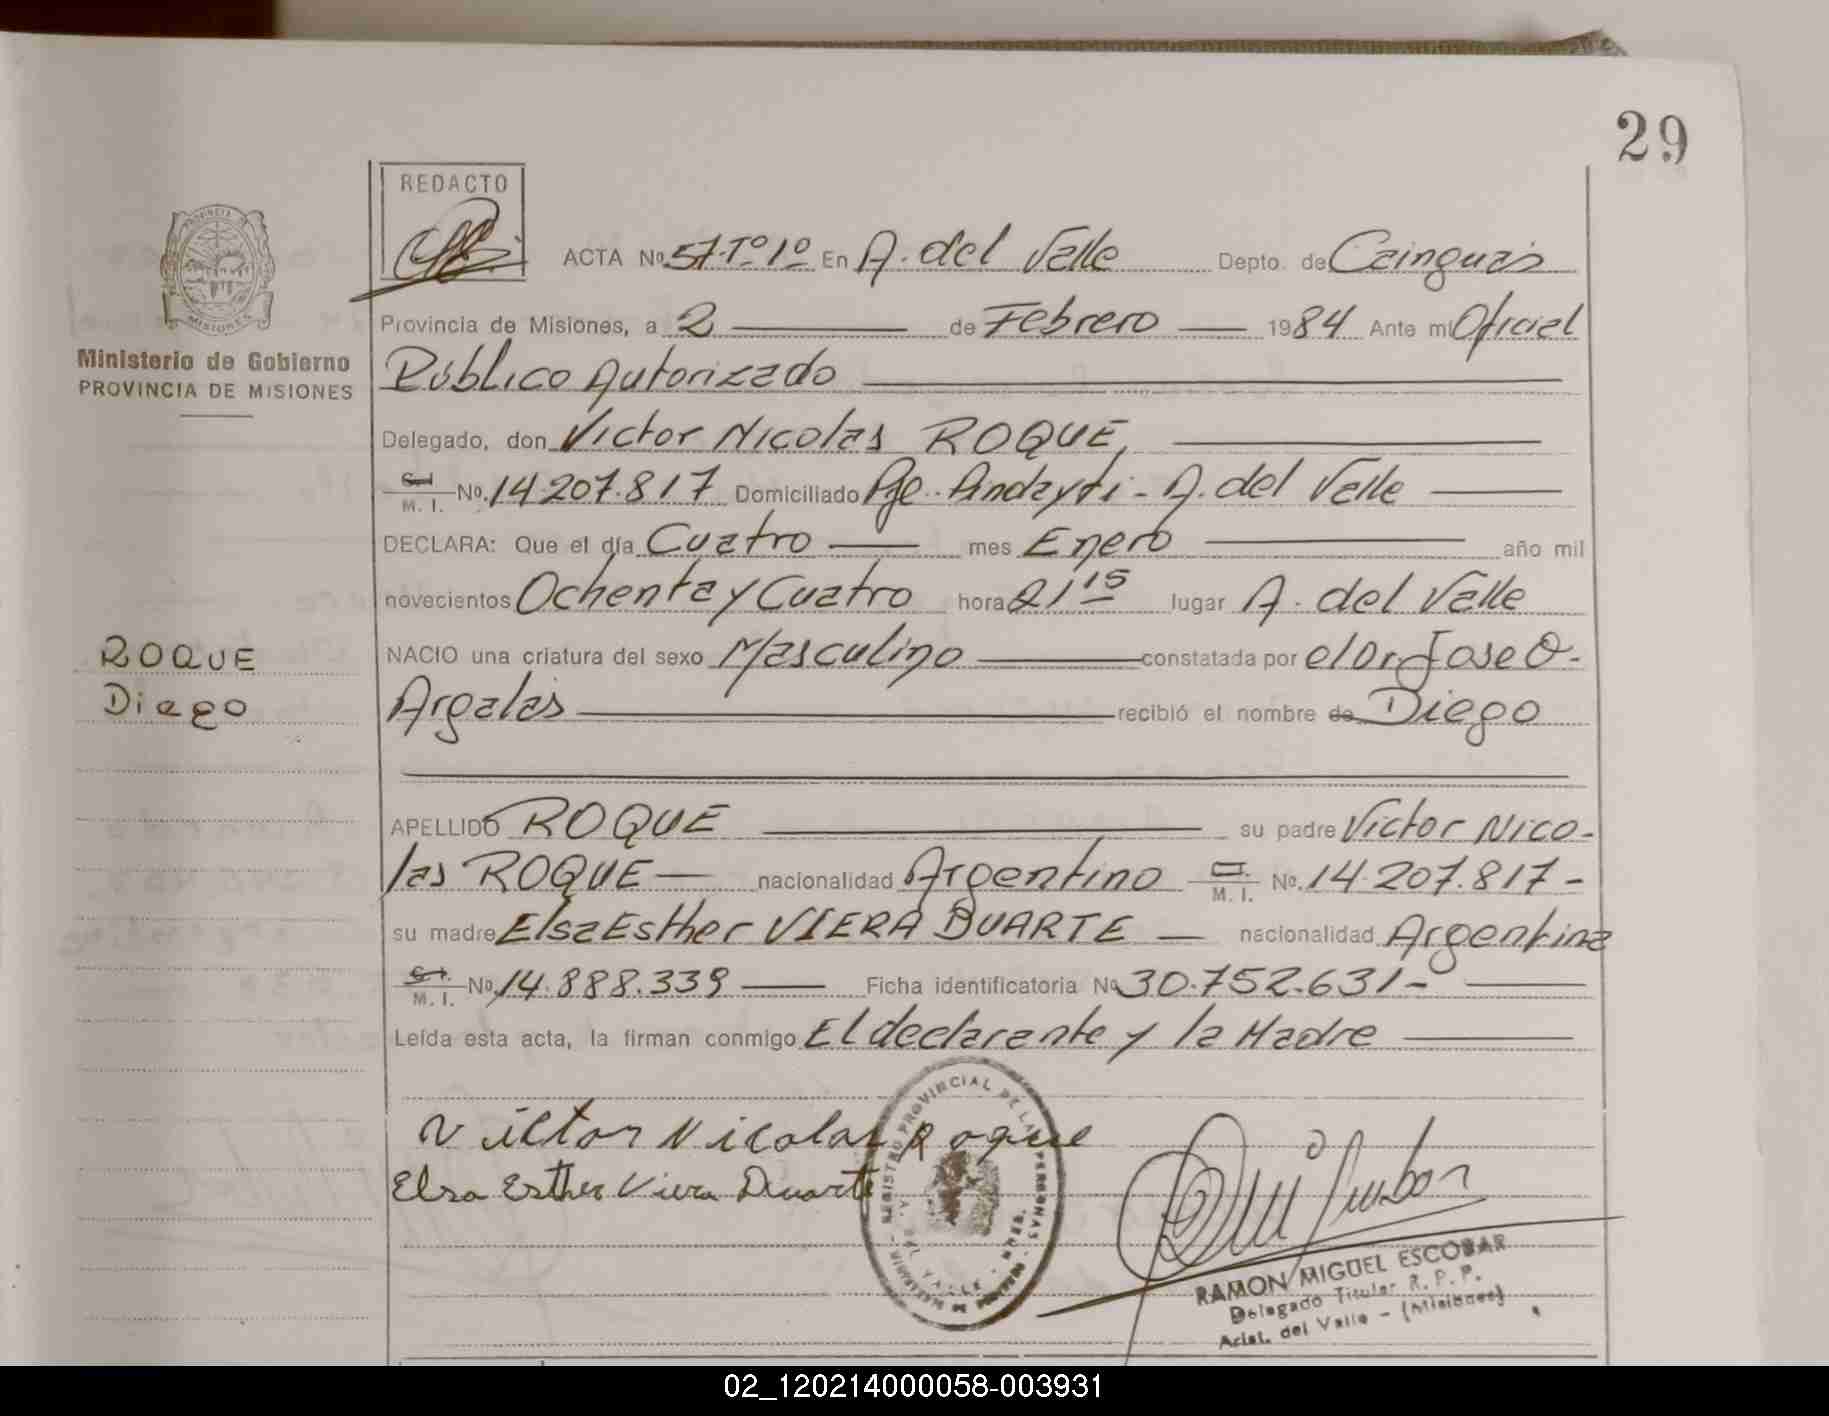 29
REDACTO
ACTA No. 57-Tº1º En A. del Valle Depto. de Cainguás
Provincia de Misiones, a 2 de Febrero 1984 Ante mi Oficial
Ministerio de Gobierno
PROVINCIA DE MISIONES
Público Autorizado
Delegado, don Victor Nicolas ROQUE,
M. I. No. 14.207.817 Domiciliado Pje. Andayti - A. del Valle
DECLARA: Que el día Cuatro mes Enero año mil
novecientos Ochenta y Cuatro hora 21 15 lugar A. del Valle
ROQUE
Diego
NACIO una criatura del sexo Masculino constatada por el Dr Jose O.
Argalas recibió el nombre de Diego
APELLIDO ROQUE su padre Victor Nico-
las ROQUE nacionalidad Argentino M. I. No. 14.207.817-
su madre Elsa Esther VIERA DUARTE nacionalidad Argentina
M. I. No. 14.888.339 Ficha identificatoria No 30.752.631-
Leída esta acta, la firman conmigo El declarante y la Madre
Victor Nicolas Roque
Elsa Esther Viera Duarte
REGISTRO PROVINCIAL DE LAS PERSONAS
RAMON MIGUEL ESCOBAR
Delegado Titular R. P. P.
Arist. del Valle - (Misiones)
02_120214000058-003931